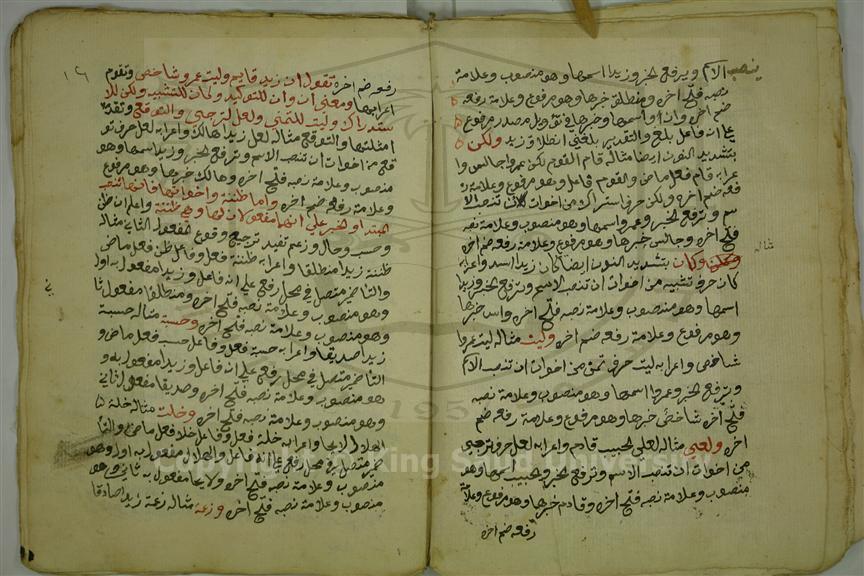 ينصب الاسم ويرفع الخبر وزيدا اسمها وهو منصوب وعلامة
نصبه فتح اخره ومنطلق خبرها وهو مرفوع وعلامة رفعه
ضم اخره وان واسمها وخبرها في تاويل مصدر مرفوع
على انه فاعل بلغ والتقدير بلغني انطلاق زيد ولكن
بتشديد النون ايضا مثاله قام القوم لكن عمروا جالس وا
عرابه قام فعل ماض والقوم فاعل وهو مرفوع وعلامة ر
فعه ضم اخره ولكن حرف استدراك من اخوات ان تنصب الا
سم وترفع الخبر وعمروا اسمها وهو منصوب وعلامة نصبه
فتح اخره وجالس خبرها وهو مرفوع وعلامة رفعه ضم اخره
وكان بتشديد النون ايضا كان زيدا اسد واعرابه
مثاله
كان حرف تشبيه من اخوات ان تنصب الاسم وترفع الخبر وزيدا
اسمها وهو منصوب وعلامة نصبه فتح اخره واسد خبرها
وهو مرفوع وعلامة رفعه ضم اخره وليت مثاله ليت عمروا
شاخص واعرابه ليت حرف تمني من اخوات ان تنصب الاسم
وترفع الخبر وعمروا اسمها وهو منصوب وعلامة نصبه
فتح اخره شاخص خبرها وهو مرفوع وعلامة رفعه ضم
اخره ولعل مثاله لعل الحبيب قادم واعرابه لعل حرف ترجي
من اخوات ان تنصب الاسم وترفع الخبر والحبيب اسمها وهو
منصوب وعلامة نصبه فتح اخره وقادم خبرها وهو مرفوع وعلامة
رفعه ضم اخره
١٦
رفعه ضم اخره تقول ان زيدا قايم وليت عمروا شاخص وتقدم
اعرابها ومعنى ان وان للتوكيد وكان للتشبيه ولكن للا
ستدراك وليت للتمني ولعل للترجي والتوقع وتقدم
امثلتها والتوقع مثاله لعل زيدا هالك واعرابه لعل حرف تو
قع من اخوات ان تنصب الاسم وترفع الخبر وزيدا اسمها وهو
منصوب وعلامة نصبه فتح اخره وهالك خبرها وهو مرفوع
وعلامة رفعه ضم اخره واما ظننت واخواتها فانها تنصب
المبتدا والخبر على انهما مفعولان لها وهي ظننت واعلم ان ظن
وحسب وخال وزعم تفيد ترجيح وقوع المفعول الثاني مثاله
ظننت زيدا منطلقا واعرابه ظننت فعل وفاعل ظن فعل ماض
والتا ضمير متصل في محل رفع على انه فاعل وزيدا مفعول به اول
وهو منصوب وعلامة نصبه فتح اخره ومنطلقا مفعول ثا
ني
وهو منصوب وعلامة نصبه فتح اخره وحسبت مثاله حسبت
زيدا صديقا واعرابه حسبت فعل وفاعل حسب فعل ماض و
التا ضمير متصل في محل رفع على انه فاعل وزيدا مفعول به و
هو منصوب وعلامة نصبه فتح اخره وصديقا مفعول ثاني
وهو منصوب وعلامة نصبه فتح اخره وخلت مثاله خلت
الهلال لايحا واعرابه خلت فعل وفاعل خلا فعل ماض والتا
ضمير متصل في محل رفع على انه فاعل والهلال مفعول به اول وهو
منصوب وعلامة نصبه فتح اخره ولايحا مفعول به ثاني وهو
منصوب وعلامة نصبه فتح اخره وزعمت مثاله زعمت زيدا صادقا
Copyright © King Saud University
195